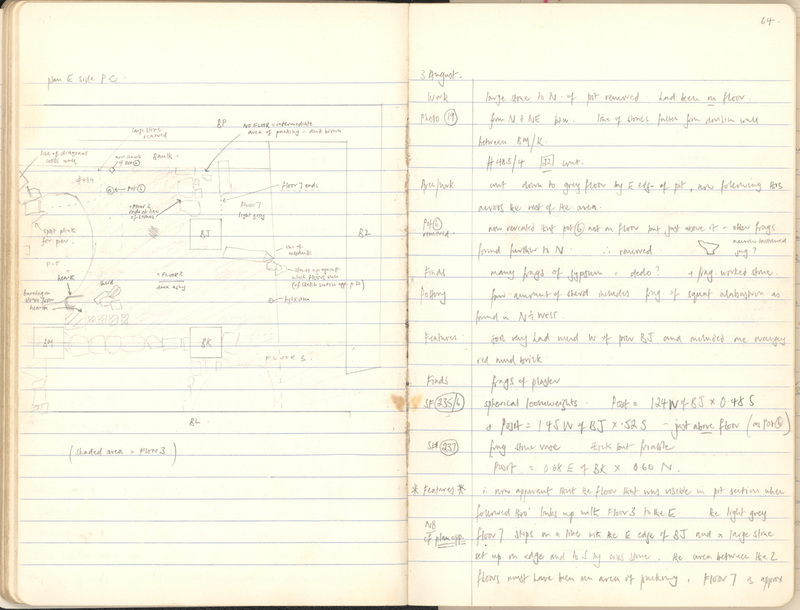 plan E side P C.
BP
NO FLOOR = intermediate
area of packing - dark brown
large stones
removed
Baulk
line of diagonal
cross wall
floor 7 ends
FLOOR 7
light grey
BJ
BZ
spot plate
for pier
PIT
hearth
sherd
FLOOR 3
dark ashy
BM
BK
FLOOR 3
BL
(shaded area = FLOOR 3)
64.
3 August.
Work
large stone to N. of pit removed. had been on floor.
Photo (19)
from N & NE btw. line of stones fallen from wall
between BM/K.
# 485/4 [22] cont.
Area/work
cont down to grey floor by E edge of pit, now following this
across the rest of the area.
Pot (6)
removed.
now revealed that pot (6) not on floor but just above it - other frags
found further to N. ∴ removed.
jug?
Finds
many frags of gypsum = dado? + frag. worked stone.
Pottery
fair amount of sherd includes frag. of squat alabastron as
found in N ½ West.
Features
soil very hard mud W of pier BJ and included one
red mud brick
Finds
frags of plaster
SF (235/6)
spherical loomweights. Posit = 1.24 W of BJ × 0.48 S
+ Posit = 1.45 W of BJ × .52 S - just above floor (as pot (6))
SF (237)
frag stone vase thick but friable
Posit = 0.68 E of BK × 0.60 N.
* Features *
∴ now apparent that the floor that was visible in pit section when
followed thro' links up with FLOOR 3 to the E the light grey
NB
cf plan opp.
floor 7 stops on a line with the E edge of BJ and a large stone
set up on edge and to S by this stone. the area between the 2
floors must have been an area of packing. FLOOR 7 is appar